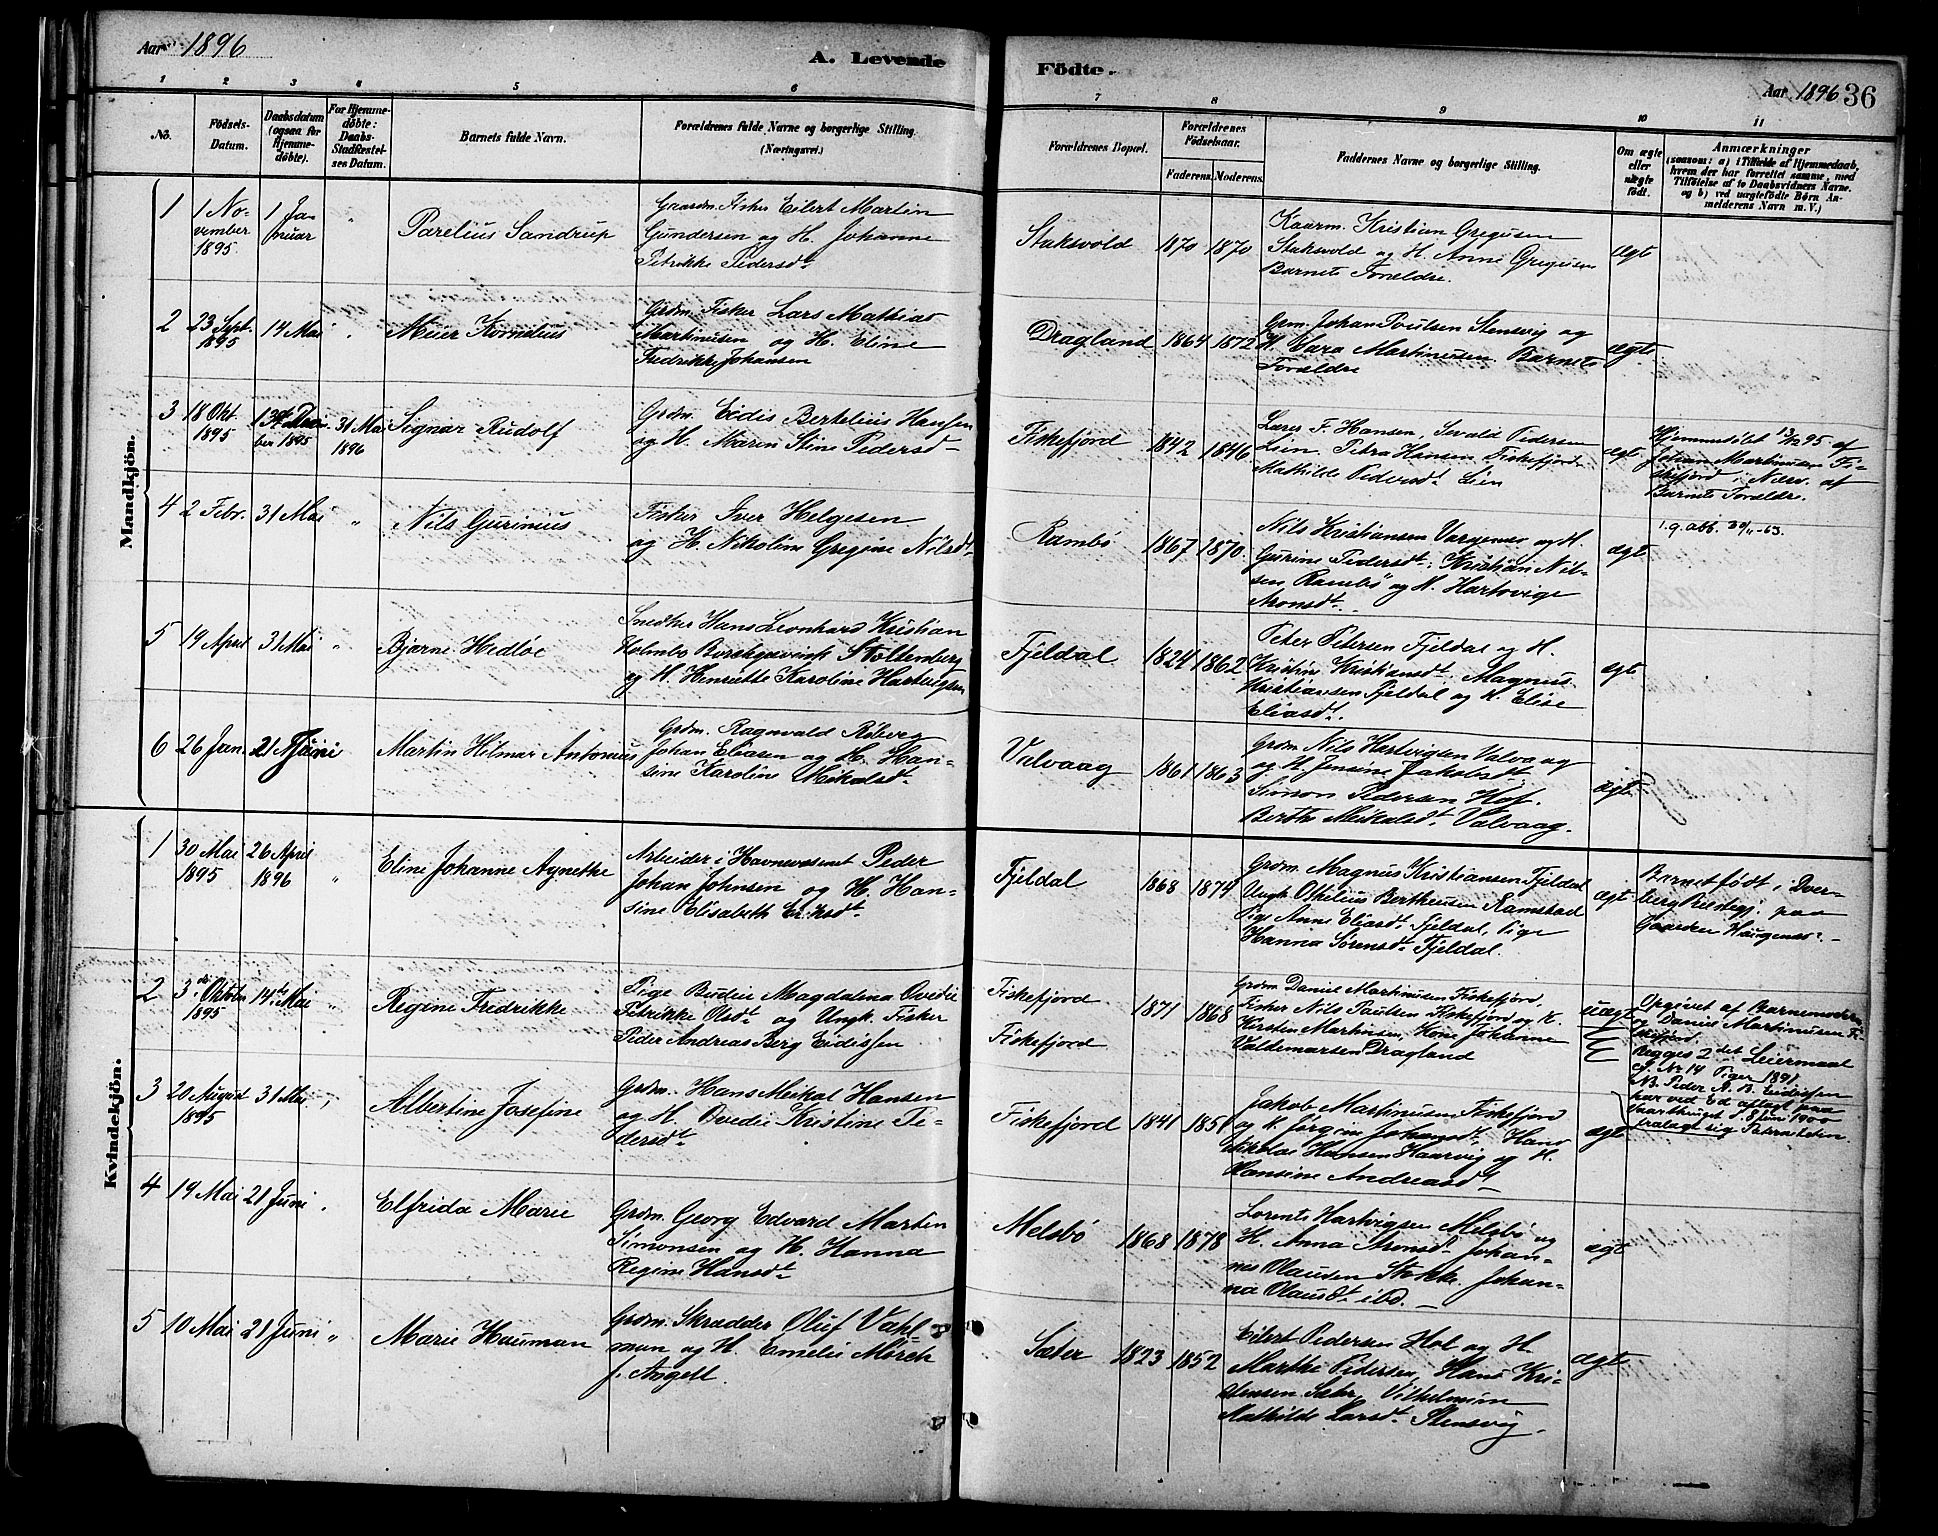 Aar 1896
A. Levende
Födte.
Aar 1896
36
1 2 3 4 5 6
7 8 9 10 11
No.
Födsels-
Datum.
Daabsdatum
(ogsaa for
Hjemme-
döbte).
For Hjemme-
döbte:
Daabs-
Stadfæstel-
ses Datum.
Barnets fulde Navn.
Forældrenes fulde Navne og borgerlige Stilling.
(Næringsvei.)
Forældrenes Bopæl.
Forældrenes
Födselsaar.
Faderens.
Moderens.
Faddernes Navne og borgerlige Stilling.
Om ægte
eller
uægte
födt.
Anmærkninger
(saasom: a) i Tilfælde af Hjemmedaab,
hvem der har forrettet samme, med
Tilföielse af to Daabsvidners Navne,
og b) ved uægtefödte Börn An-
melderens Navn m. V.)
Mandkjön.
1
1 No-
vember
1895
1 Ja-
nuar
"
Parelius Sandrup
Gaardm. Fisker Eilert Martin
Gundersen og H. Johanne
Petrikke Pedersdt
Staksvold
1870
1870
Kaarm. Kristian Gregusen
Staksvold og H. Anne Gregusen
Barnets Foreldre.
ægt
2
23 Sept.
1895
14 Mai
"
Meier Kornelius
Grdm. Fisker Lars Mathias
Martinusen og H. Eline
Fredrikke Johansen
Dragland
1864
1872
Grm. Johan Poulsen Stensvig og
H. Vara Martinusen. Barnets
Foreldre
ægte
3
18 Okt.
1895
ber 1895
31 Mai
1896
Signar Rudolf
Grdm. Eidis Bertelius Hansen
og H. Maren Stine Pedersdt
Fiskefjord
1842
1846
Lærer F. Hansen, Sevald Pedersen
Lien, Petra Hansen Fiskefjord
Mathilde Pedersdt Lien
ægt
Hjemmedøbt 13/12 95 af
Johan Martinusen Fi-
skefjord i Nærv. af
Barnets Foreldre.
4
2 Febr.
31 Mai
"
Nils Gurinius
Fisker Iver Helgesen
og H. Nikoline Gregine Nilsdt
Rambø
1867
1870
Nils Kristiansen Vargenes og H.
Gurine Pedersdt, Kristian Nil-
sen Rambø og H. Hartvige
Aronsdt.
ægt
1.9.abb. 20/11-63.
5
19 April
31 Mai
"
Bjarne Hedløe
Snedker Hans Leonhard Kristian
Holmbo Stoltenberg
og H. Henriette Karoline Hartvigsen
Fjeldal
1824
1862
Peter Petersen Fjeldal og H.
Kristine Kristiansdt. Magnus
Kristiansen Fjeldal og H. Elise
Eliasdt.
ægt
6
26 Jan.
21 Juni
Martin Hilmar Antonius
Grdm. Ragnvald Røberg
Johan Eliasen og H. Han-
sine Karoline Mikalsdt
Valvaag
1861
1863
Grdm Nils Hartvigsen Valvaag
og H. Jensine Jakobsdt
Simon Pedersen Hof.
Berthe Meikalsdt. Valvaag.
ægt
Kvindekjön.
1
30 Mai
1895
26 April
1896
"
Eline Johanne Agnethe
Arbeider i Havnevæsenet Peder
Johan Johnsen og H. Han-
sine Elisabeth Eriksdt
Fjeldal
1868
1874
Grdm. Magnus Kristiansen Fjeldal
Ungk. Othelius Bertheusen Ramstad
Pige Anne Eliasdt. Fjeldal, Pige
Hanna Sørensdt. Fjeldal.
ægt
Barnet født i Dver-
berg Præstegj. paa
Gaarden Haugenes.
2
3 Oktober
1895
14de Mai
"
Regine Fredrikke
Pige Magdalena Ovedie
Petrikke Olsdt og Ungk. Fisker
Peder Andreas Berg Eidissen
Fiskefjord
Fiskefjord
1871
1868
Grdm Daniel Martinusen Fiskefjord,
Fisker Nils Paulsen Fiskefjord og H.
Kirsten Martinsen, Kone Johanne
Valdemarsen Dragland
uægt
Opgivet af Barnemoderen
og Daniel Martinusen Fi-
skefjord.
Begges 2det Leiermaal
cf. No 14 Piger 1891.
NB. Peder A. B. Eidissen
har ved Ed aflagt paa
8 Juni 1900
fralagt sig Paterniteten.
3
20 August
1895
31 Mai
"
Albertine Josefine
Grdm. Hans Meikal Hansen
og H. Ovedie Kristine Pe-
dersdt
Fiskefjord
1841
1851
Jakob Martinusen Fiskefjord
og H. Jørgine Johansdt, Hans
Nikolai Hansen Haarvig og H.
Hansine Andreasdt
ægt
4
19 Mai
21 Juni
"
Elfrida Marie
Grdm. Georg Edvard Martin
Simonsen og H. Hanna
Regine Hansdt
Melsbø
1868
1878
Lorents Hartvigsen Melsbø og
H. Anna Aronsdt. Johan-
nes Olausen Stokke. Johan-
na Olausdt. ibd.
ægt
5
10 Mai
21 Juni
"
Marie Hauman
Grdm. Skrædder Oluf Vahl-
mun og H. Emelie Mørch
f. Angell.
Sæter
1823
1852
Eilert Pedersen Hol og H
Marthe Pedersen, Hans Kri-
stensen Sæter, Vilhelmine
Mathilde Larsdt. Stensvig.
ægt